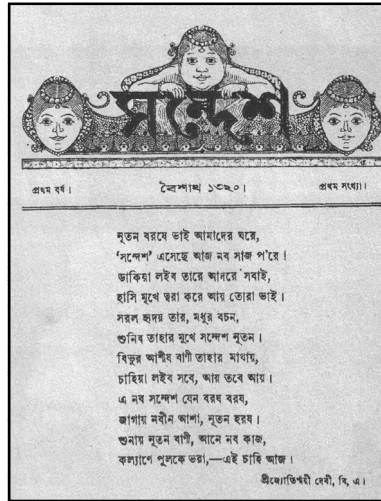 সন্দেশ
প্রথম বর্ষ। বৈশাখ ১৩২০। প্রথম সংখ্যা।
নূতন বরষে ভাই আমাদের ঘরে,
‘সন্দেশ’ এসেছে আজ নব সাজ প'রে!
ডাকিয়া লইব তারে আদরে সবাই,
হাসি মুখে ত্বরা করে আয় তোরা ভাই।
সরল হৃদয় তার, মধুর বচন,
শুনিব তাহার মুখে সন্দেশ নূতন।
বিভুর আশীষ বাণী তাহার মাথায়,
চাহিয়া লইব সবে, আয় তবে আয়।
এ নব সন্দেশ যেন বরষ বরষ,
জাগায় নবীন আশা, নূতন হরষ।
শুনায় নূতন বাণী, আনে নব কাজ,
কল্যাণে পুলকে ভরা,—এই চাহি আজ।
শ্রীজ্যোতির্ম্ময়ী দেবী, বি, এ।